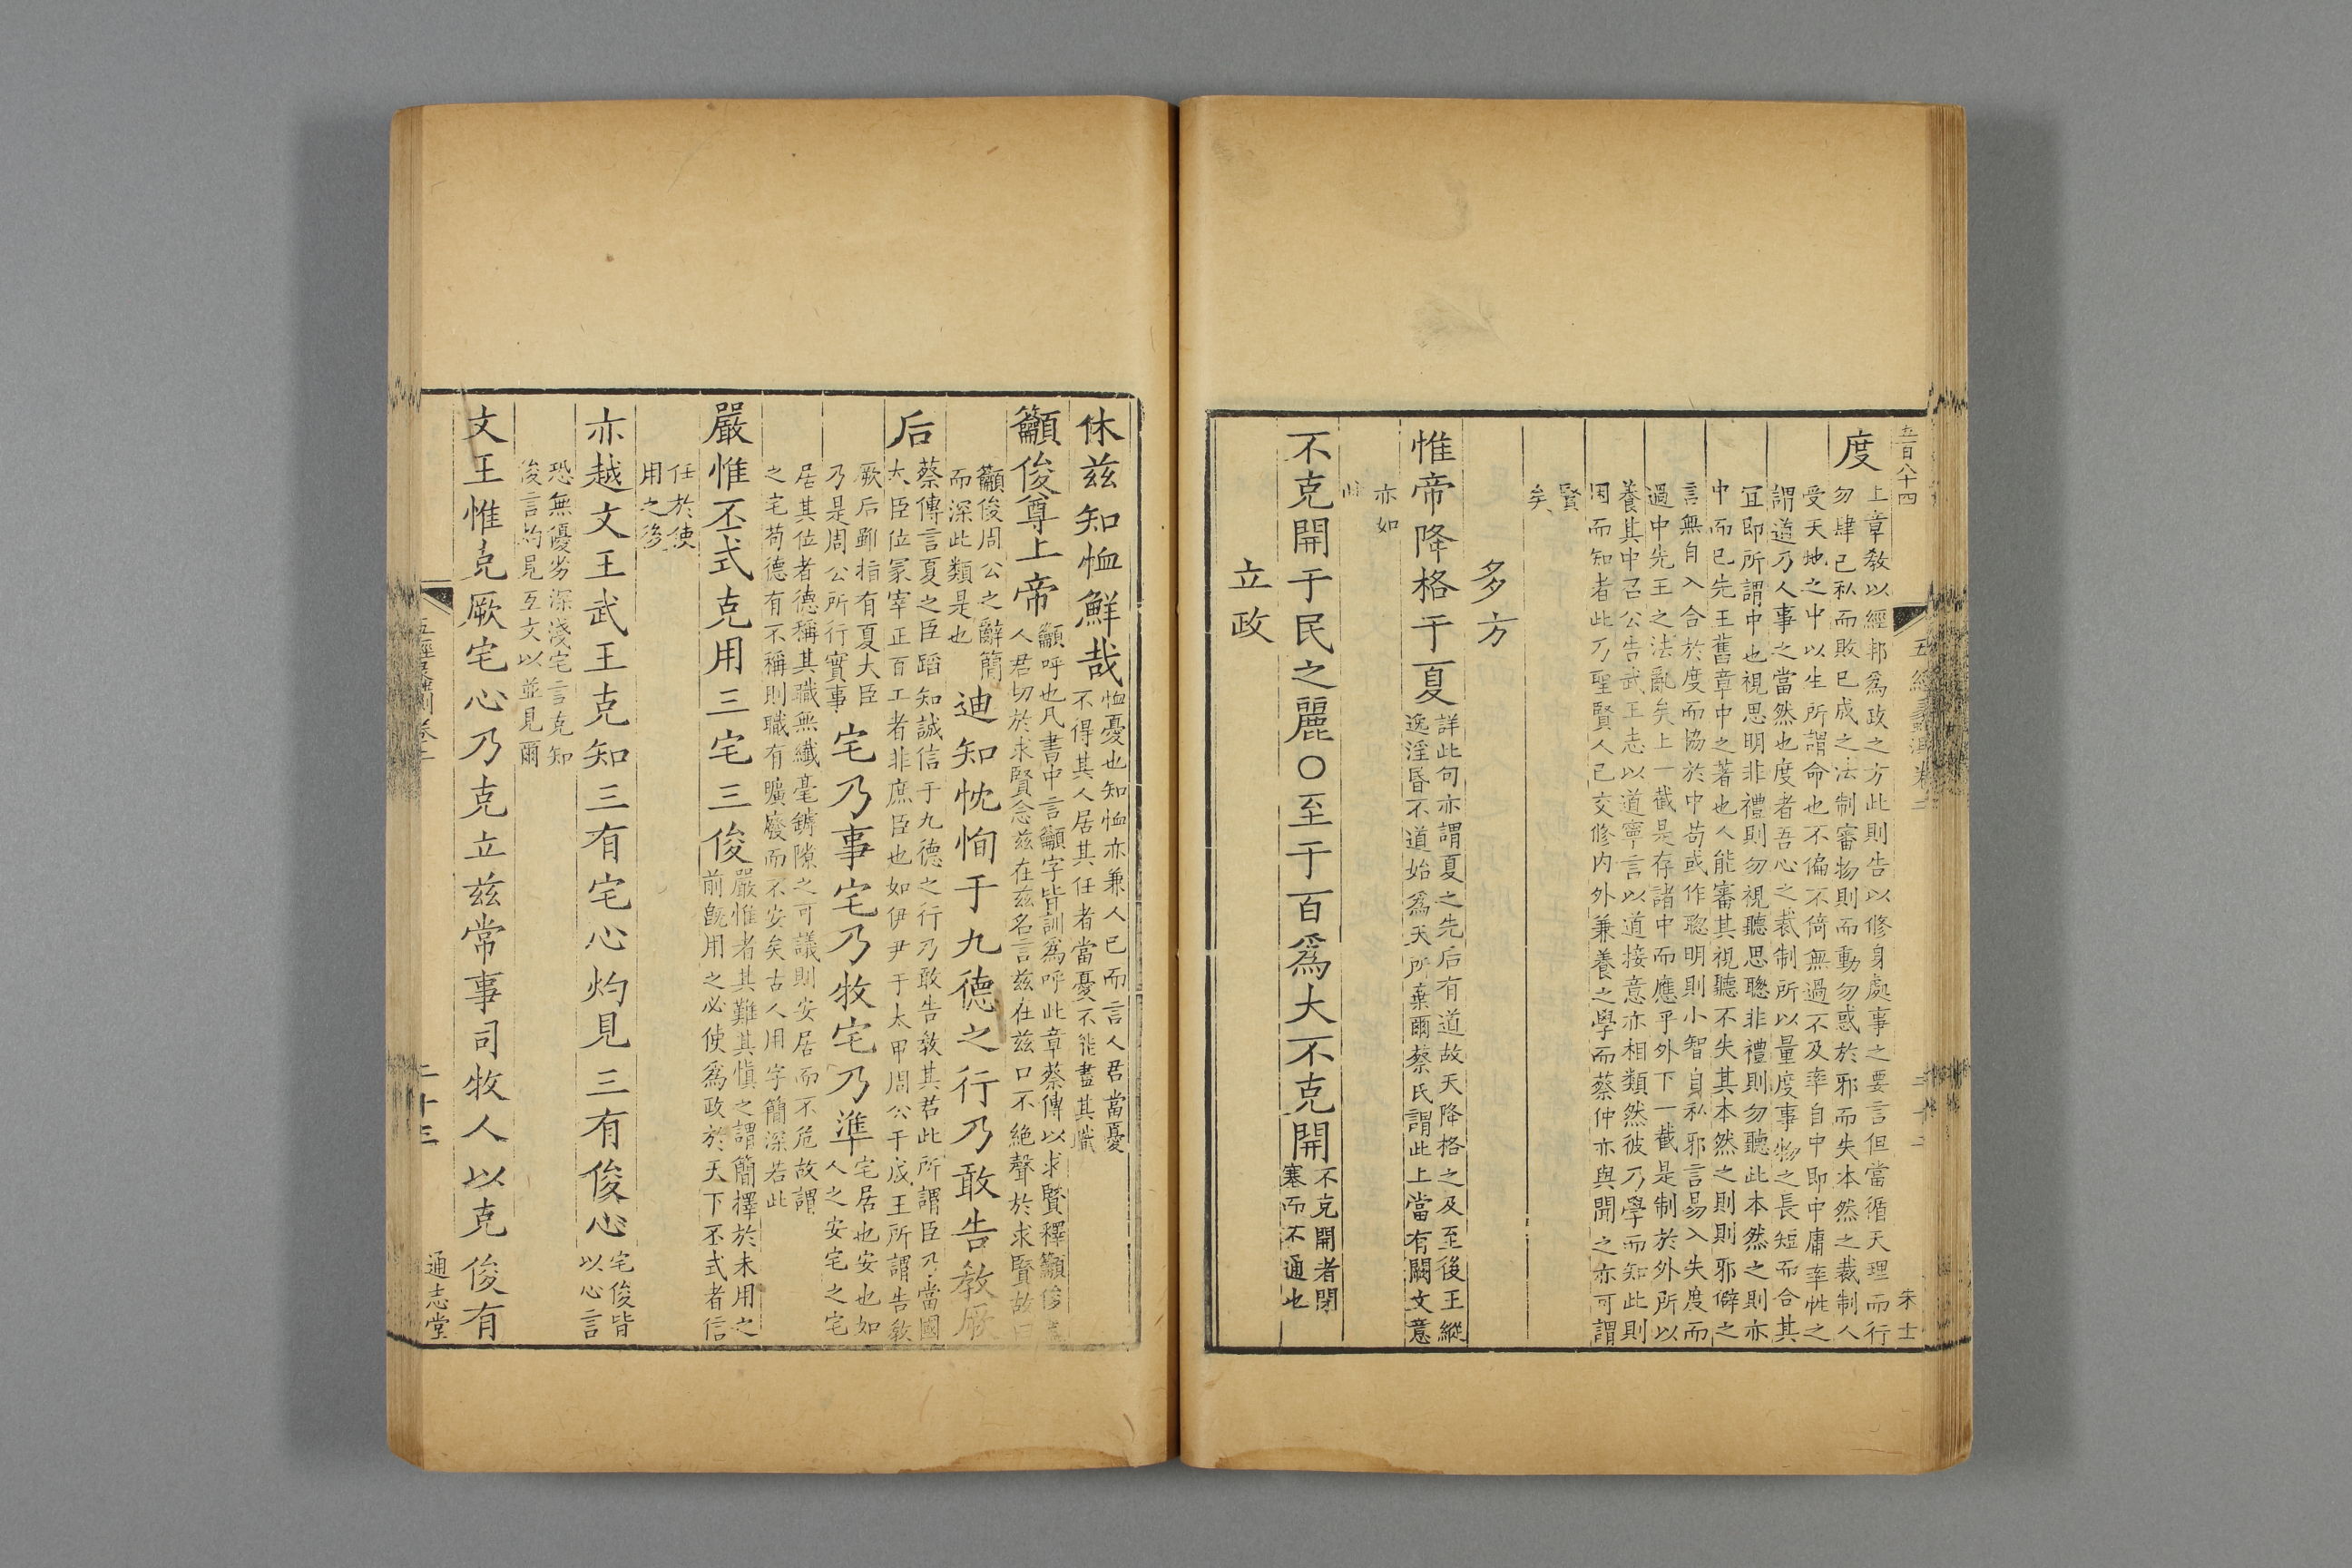 五百八十四
朱士
度
上章教以經邦爲政之方此則告以修身處事之要言但當循天理而行
勿肆己私而敗已成之法制審物則而動勿惑於邪而失本然之裁制人
受天地之中以生所謂命也不偏不倚無過不及率自中即中庸率性之
謂道乃人事之當然也度者吾心之裁制所以量度事物之長短而合其
宜即所謂中也視思明非禮則勿視聽思聰非禮則勿聽此本然之則亦
中而已先王舊章中之著也人能審其視聽不失其本然之則則邪僻之
言無自入合於度而協於中苟或作聰明則小智自私邪言易入失度而
過中先王之法亂矣上一截是存諸中而應乎外下一截是制於外所以
養其中召公告武王志以道寧言以道接意亦相類然彼乃學而知此則
困而知者此乃聖賢人已交修内外兼養之學而蔡仲亦與聞之亦可謂
賢
矣
多方
惟帝降格于夏
詳此句亦謂夏之先后有道故天降格之及至後王縱
逸淫昬不道始爲天所棄爾蔡氏謂此上當有闕文意
亦如
此
不克開于民之麗○至于百爲大不克開
不克開者閉
塞而不通也
立政
休兹知恤鮮哉
恤憂也知恤亦兼人已而言人君當憂
不得其人居其任者當憂不能盡其職
籲俊尊上帝
籲呼也凡書中言籲字皆訓爲呼此章蔡傳以求賢釋籲俊蓋
人君切於求賢念兹在兹名言兹在兹口不絶聲於求賢故曰
籲俊周公之辭簡
而深此類是也
迪知忱恂于九德之行乃敢告教厥
后
蔡傳言夏之臣蹈知誠信于九德之行乃敢告教其君此所謂臣乃當國
大臣位冢宰正百工者非庶臣也如伊尹于太甲周公于成王所謂告教
厥后雖指有夏大臣
乃是周公所行實事
宅乃事宅乃牧宅乃準
宅居也安也如
人之安宅之宅
居其位者德稱其職無纖毫罅隙之可議則安居而不危故謂
之宅苟德有不稱則職有曠廢而不安矣古人用字簡深若此
嚴惟丕式克用三宅三俊
嚴惟者其難其愼之謂簡擇於未用之
前旣用之必使爲政於天下丕式者信
任於使
用之後
亦越文王武王克知三有宅心灼見三有俊心
宅俊皆
以心言
恐無優劣深淺宅言克知
俊言灼見互文以並見爾
文王惟克厥宅心乃克立兹常事司牧人以克俊有
二十三
通志堂